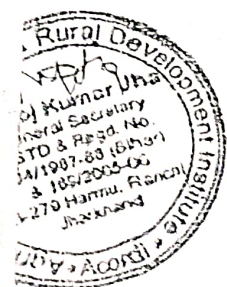 & Rural Development Institute
Kumar Jha
General Secretary
STD & Regd. No.
4/1987-88 (Bihar)
& 169/2005-06
-279 Harmu, Ranchi
Jharkhand
Acordi